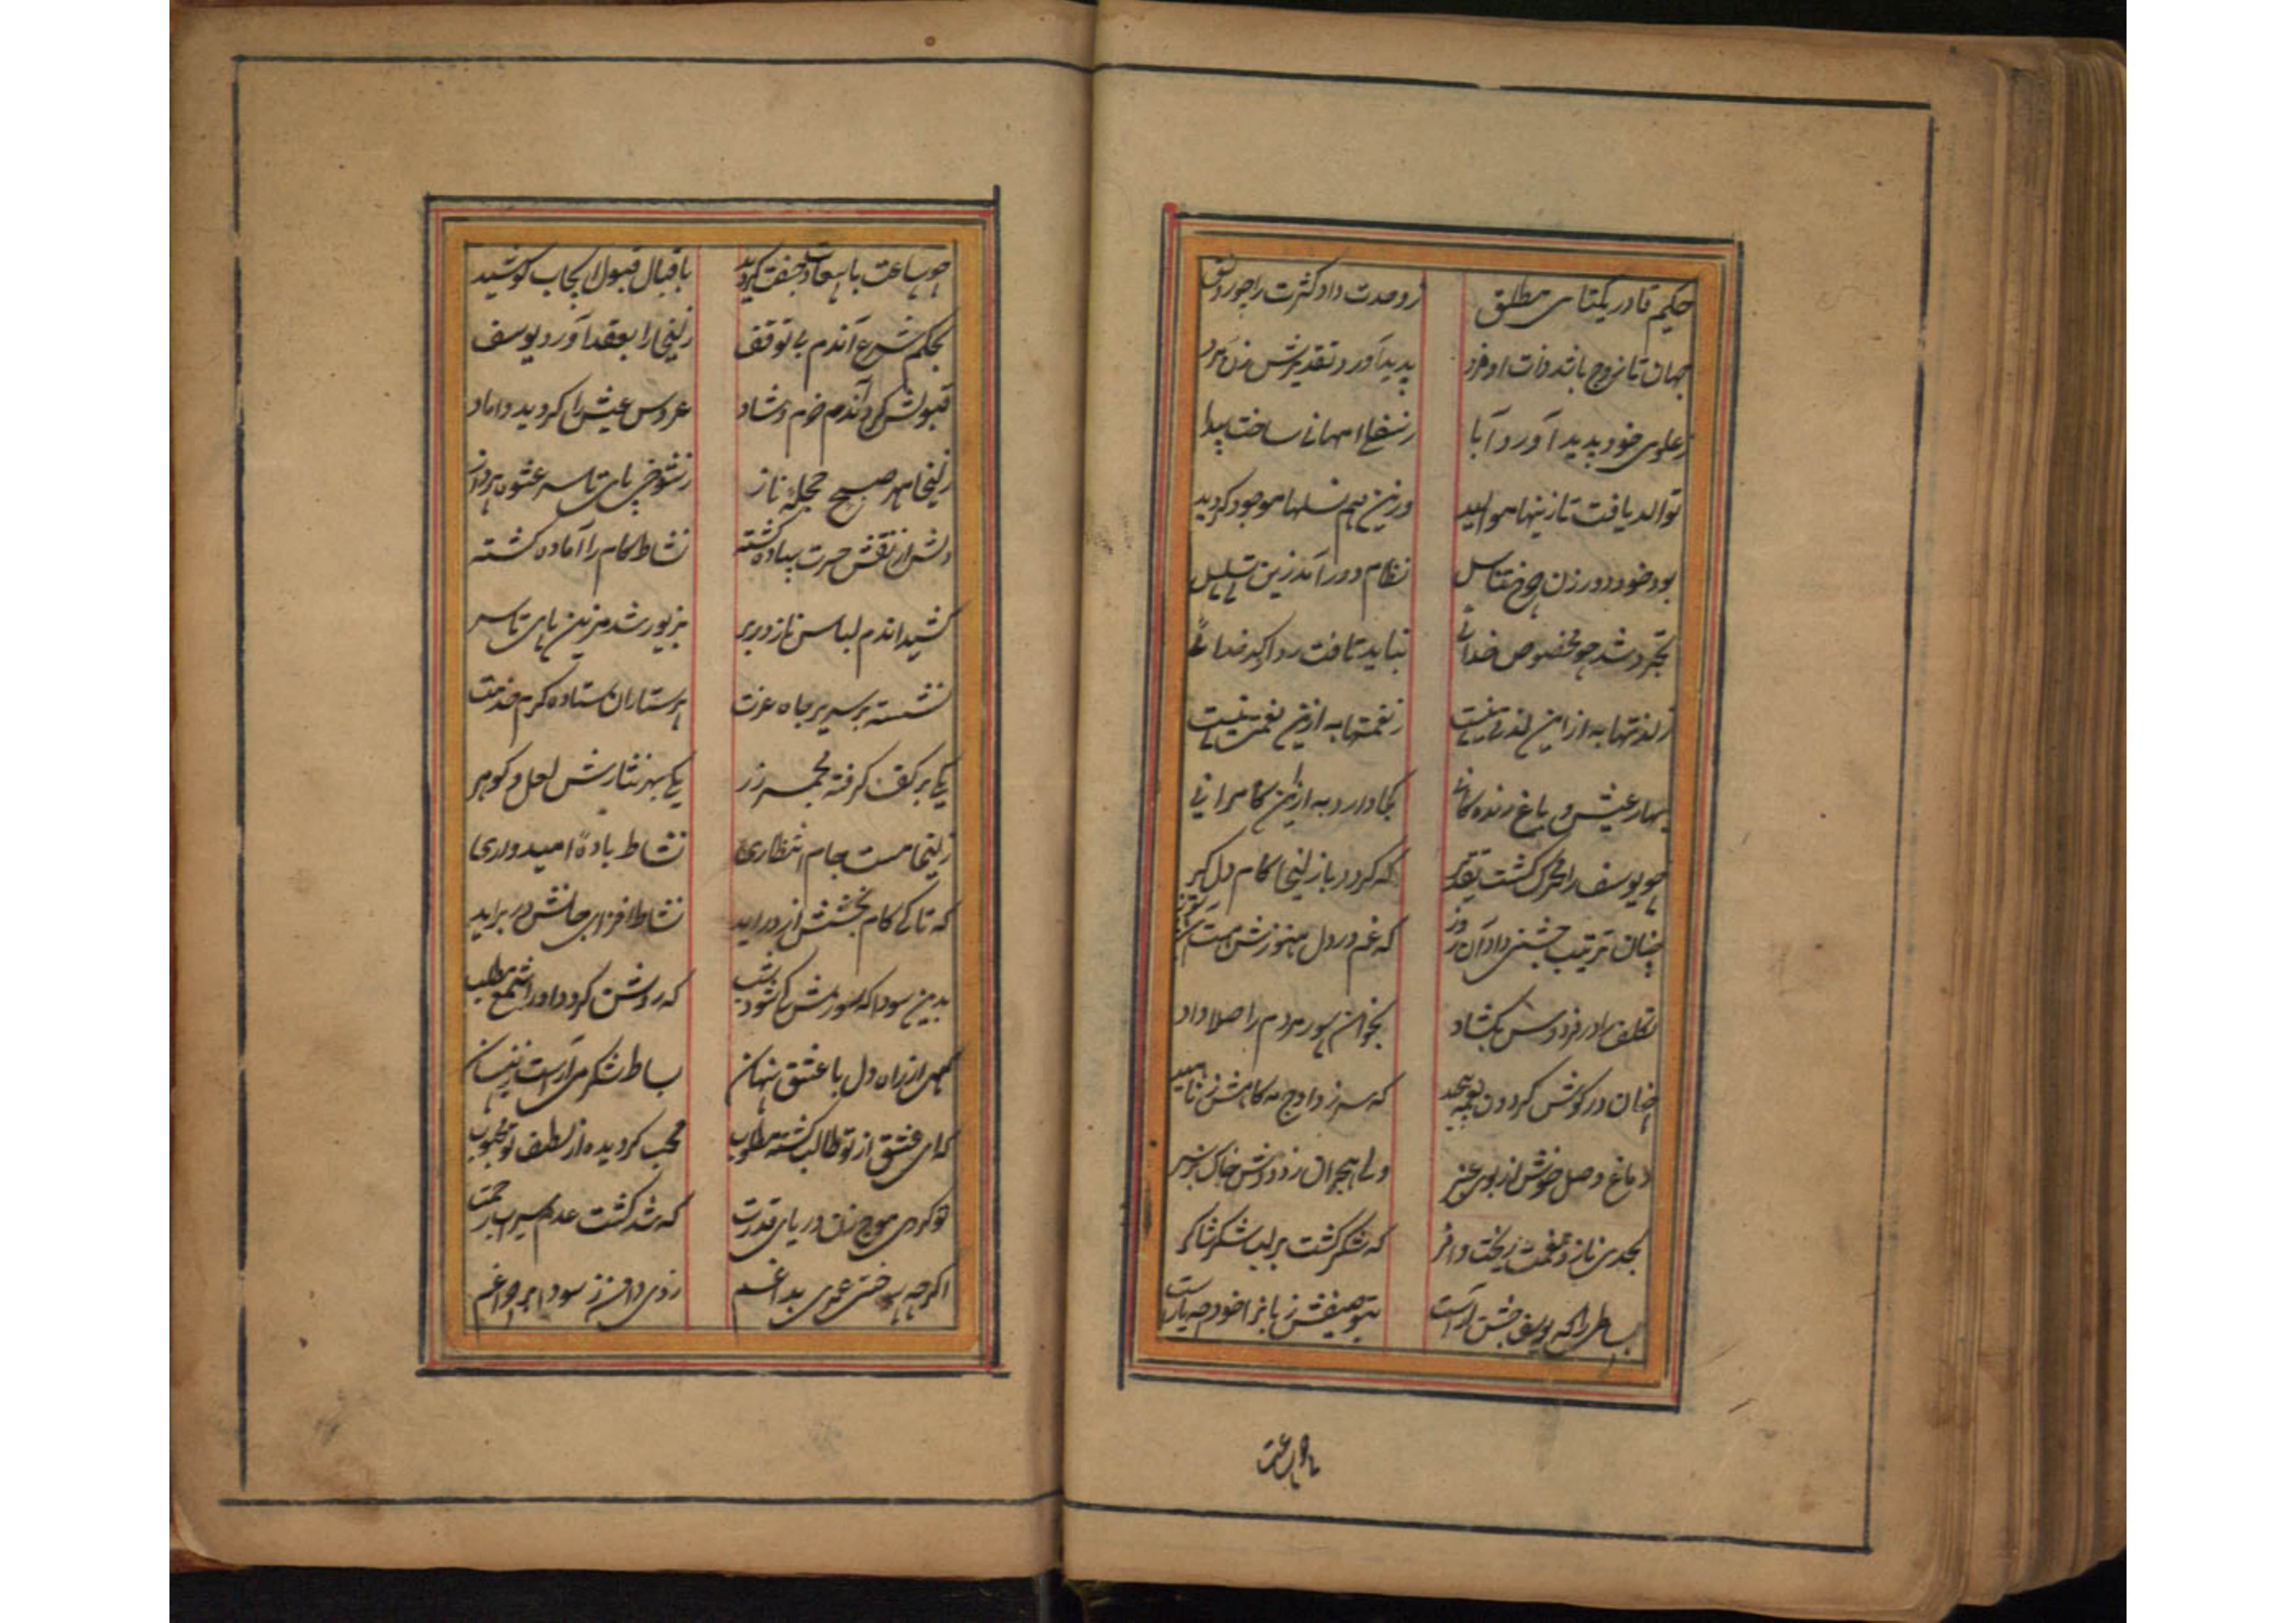 حکیم قادر یکتای مطلق ز وحدت داد کثرت را چو رونق
جهان تا زوج باشد ذات او فرد پدید آورد تقدیرش زن و مرد
ز علوی خود پدید آورد آبا ز سفلی امهاتی ساخت پیدا
توالد یافت تا زینها موالید وزین هم نسلها موجود کردید
بود خود دور زن چرخ تناسل نظام دور آمد زین تسلسل
تجرد شد چو مخصوص خدائی نباید تافت رو از کدخدائی
ز لذتها به از این لذتی نیست ز نعمتها به ازین نعمتی نیست
بهار عیش و باغ زنده کانی کجا دارد به ازین کامرانی
چو یوسف را محرک کشت تقدیر که کردد باز لیخا کام دل کیر
چنان ترتیب جشنی داد آن روز که غم در دل هنوزش هست
تکلف را در فردوس بکشاد بخوان سور مردم را صلا داد
چنان در کوش کردون که سر زد اوج
دماغ وصل خوش از بوی عنبر ولی هجران زد دودش خاک بر سر
بحدی ناز و نعمت ریخت وافر که شکر کشت بر لب شکر شاکر
بساطی را که یوسف جشن آراست بتوصیفش زبانرا خود چه یاراست
چو ساعت
چو ساعت با سعادت جفت کردید باقبال قبول ایجاب کوشید
بحکم شرع آندم بی توقف زلیخا را بعقد آورد یوسف
قبولش کرد آندم خرم و شاد عروس عیش را کردید داماد
زلیخا مهر صبح حجله ناز ز شوخی پای تا سر عشوه پرداز
دلش از نقش حسرت ساده کشته نشاط کام را آماده کشته
کشید اندم لباس ناز در بر بزیور شد مزین پای تا سر
نشسته بر سریر جاه عزت پرستاران ستاده کرم خدمت
یکی بر کف کرفته مجمر زر یکی بهر نثارش لعل و کوهر
زلیخا مست جام انتظاری نشاط باده امیدواری
که تا کی کام بخشش از در آید نشاط افزای جانش در بر آید
بدین سودا که سوزش کی شود شب که روشن کردد او را شمع مطلب
کهی از راه دل با عشق پنهان بساط شکر می آراست زینسان
که ای عشق از تو طالب کشته مطلوب محب کردیده از لطف تو محبوب
تو کردی موج زن دریای قدرت که شد کشت سیراب رحمت
اکرچه سوختی عمری بداغم زدی دامن ز سودا بر چراغم